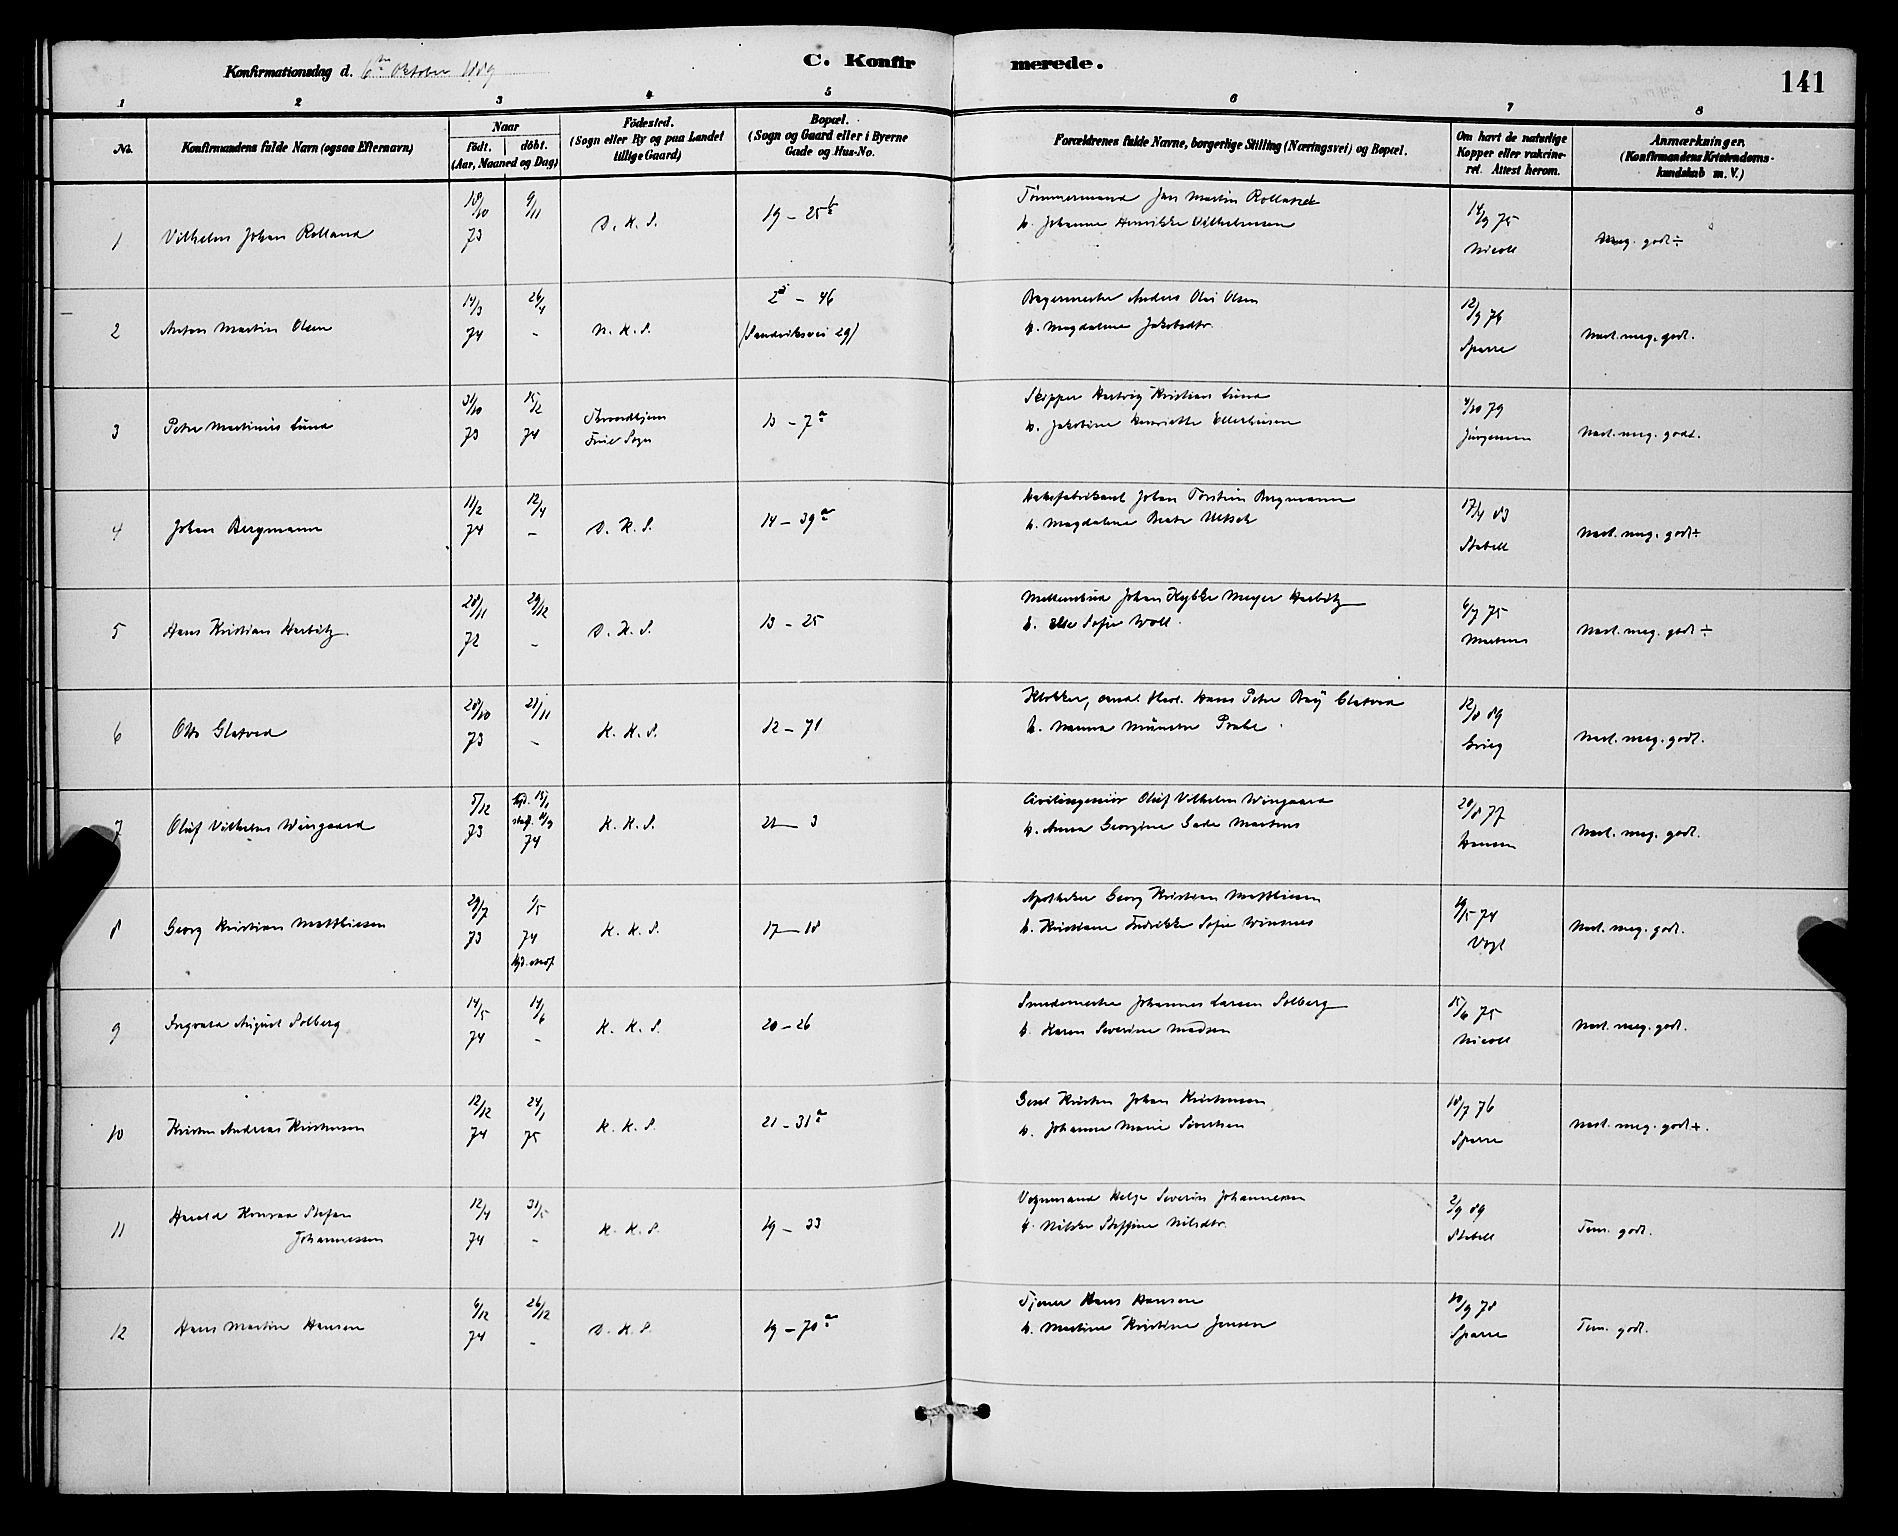 Konfirmationsdag d. 6te Oktober 1889
C. Konfirmerede.
141
1 2 3 4 5 6 7 8
No. Konfirmandens fulde Navn (ogsaa Efternavn) Naar født. døbt. (Aar, Maaned og Dag) Fødested. (Sogn eller By og paa Landet tillige Gaard) Bopæl. (Sogn og Gaard eller i Byerne Gade og Hus-No. Forældrenes fulde Navne, borgerlige Stilling (Næringsvei) og Bopæl. Om havt de naturlige Kopper eller vakcineret. Attest herom. Anmærkninger. (Konfirmandens Kristendomskundskab m. V.)
1 Vilhelm Johan Rolland 18/10 73 9/11 D. K. S. 19 - 25 b Tømmermand Jan Martin Rolland
h. Johanne Henrikke Vilhelmsen 14/9 75 Nicoll Meg. godt ÷
2 Anton Martin Olsen 14/3 74 26/4 - N. K. S. 23 - 46 (Sandviksvei 29) Bagermester Anders Olai Olsen
h. Magdalene Jakobsdtr. 12/9 76 Sparre Næst. meg. godt.
3 Peter Martinus Lund 31/10 73 15/2 74 Throndhjem Frue Sogn 13 - 7 a Skipper Hartvig Kristian Lund
h. Jakobine Henriette Ellerhusen 4/10 79 Jürgensen Næst. meg. godt.
4 Johan Bergmann 11/2 74 12/4 - D. K. S. 14 - 39 a Johan Torstein Bergmann
h. Magdalene Beate 17/4 83 Stabell Næst. meg. godt ÷
5 Hans Kristian Harbitz 28/11 72 29/12 - D. K. S. 13 - 25 Johan Meyer Harbitz
h. Elle Sofie Woll. 6/7 75 Martens Næst. meg. godt ÷
6 Otto Glatved 28/10 73 21/11 - K. K. S. 12 - 71 Klokker, cand. theol. Hans Peter Bøy Glatved
h. Nanna Münster Prahl. 12/8 89 Grieg Næst. meg. godt.
7 Oluf Vilhelm Wingaard 5/12 73 hjd. 15/1 stadf. 74 K. K. S. 21 - 3 Civilingeniør Oluf Vilhelm Wingaard
h. Anna Georgine Gade Martens 20/8 77 Hansen Næst. meg. godt.
8 Georg Kristian Matthiesen 29/7 73 /5 74 K. K. S. 17 - 18 Apotheker Georg Kristian Matthiesen
h. Kristiane Fredrikke Sofie Winsnes 19/5 74 Vogt Næst. meg. godt.
9 Ingvara August Solberg 14/5 74 14/6 - K. K. S. 20 - 26 Smedemester Johannes Larsen Solberg
h. Karen Severine Madsen 15/6 75 Nicoll Næst. meg. godt.
10 Kristen Andreas Kristensen 12/12 74 24/1 75 K. K. S. 21 - 31 a Johan Kristensen
h. Johanne Marie Sivertsen 18/7 76 Sparre Næst. meg. godt +.
11 Harald Konrad Stefan Johannessen 12/4 74 31/5 - K. K. S. 19 - 33 Vognmand Helge Severin Johannessen
h. Nilsdtr. 2/9 89 Stabell Tem. godt.
12 Hans Martin Hansen 6/12 74 26/12 - D. K. S. 19 - 70 a Tjener Hans Hansen
h. Martine Kristine Jensen 10/9 78 Sparre Tem. godt.